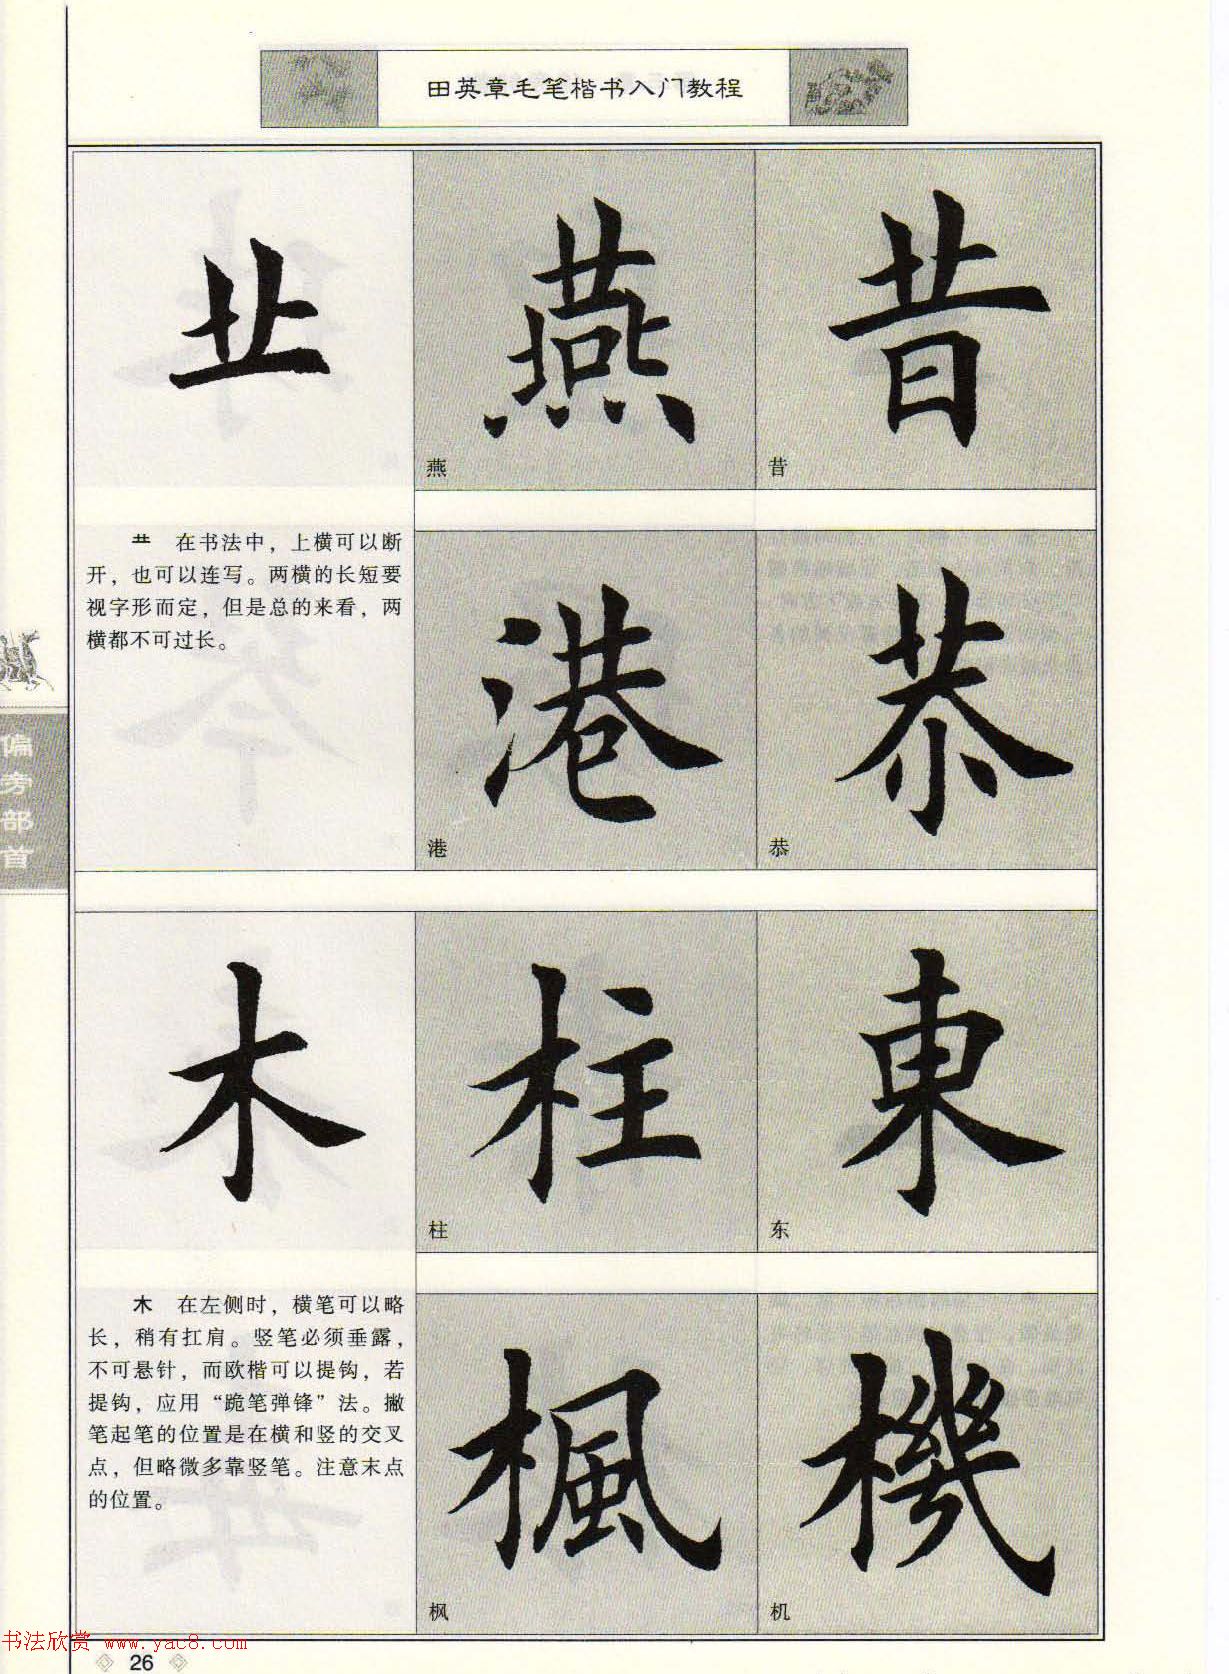 田英章毛笔楷书入门教程
燕
昔
龷 在书法中，上横可以断
开，也可以连写。两横的长短要
视字形而定，但是总的来看，两
横都不可过长。
港
恭
偏
旁
部
首
木
柱
東
柱
东
木 在左侧时，横笔可以略
长，稍有扛肩。竖笔必须垂露，
不可悬针，而欧楷可以提钩，若
提钩，应用“跪笔弹锋”法。撇
笔起笔的位置是在横和竖的交叉
点，但略微多靠竖笔。注意末点
的位置。
楓
機
枫
机
书法欣赏 www.yac8.com
26